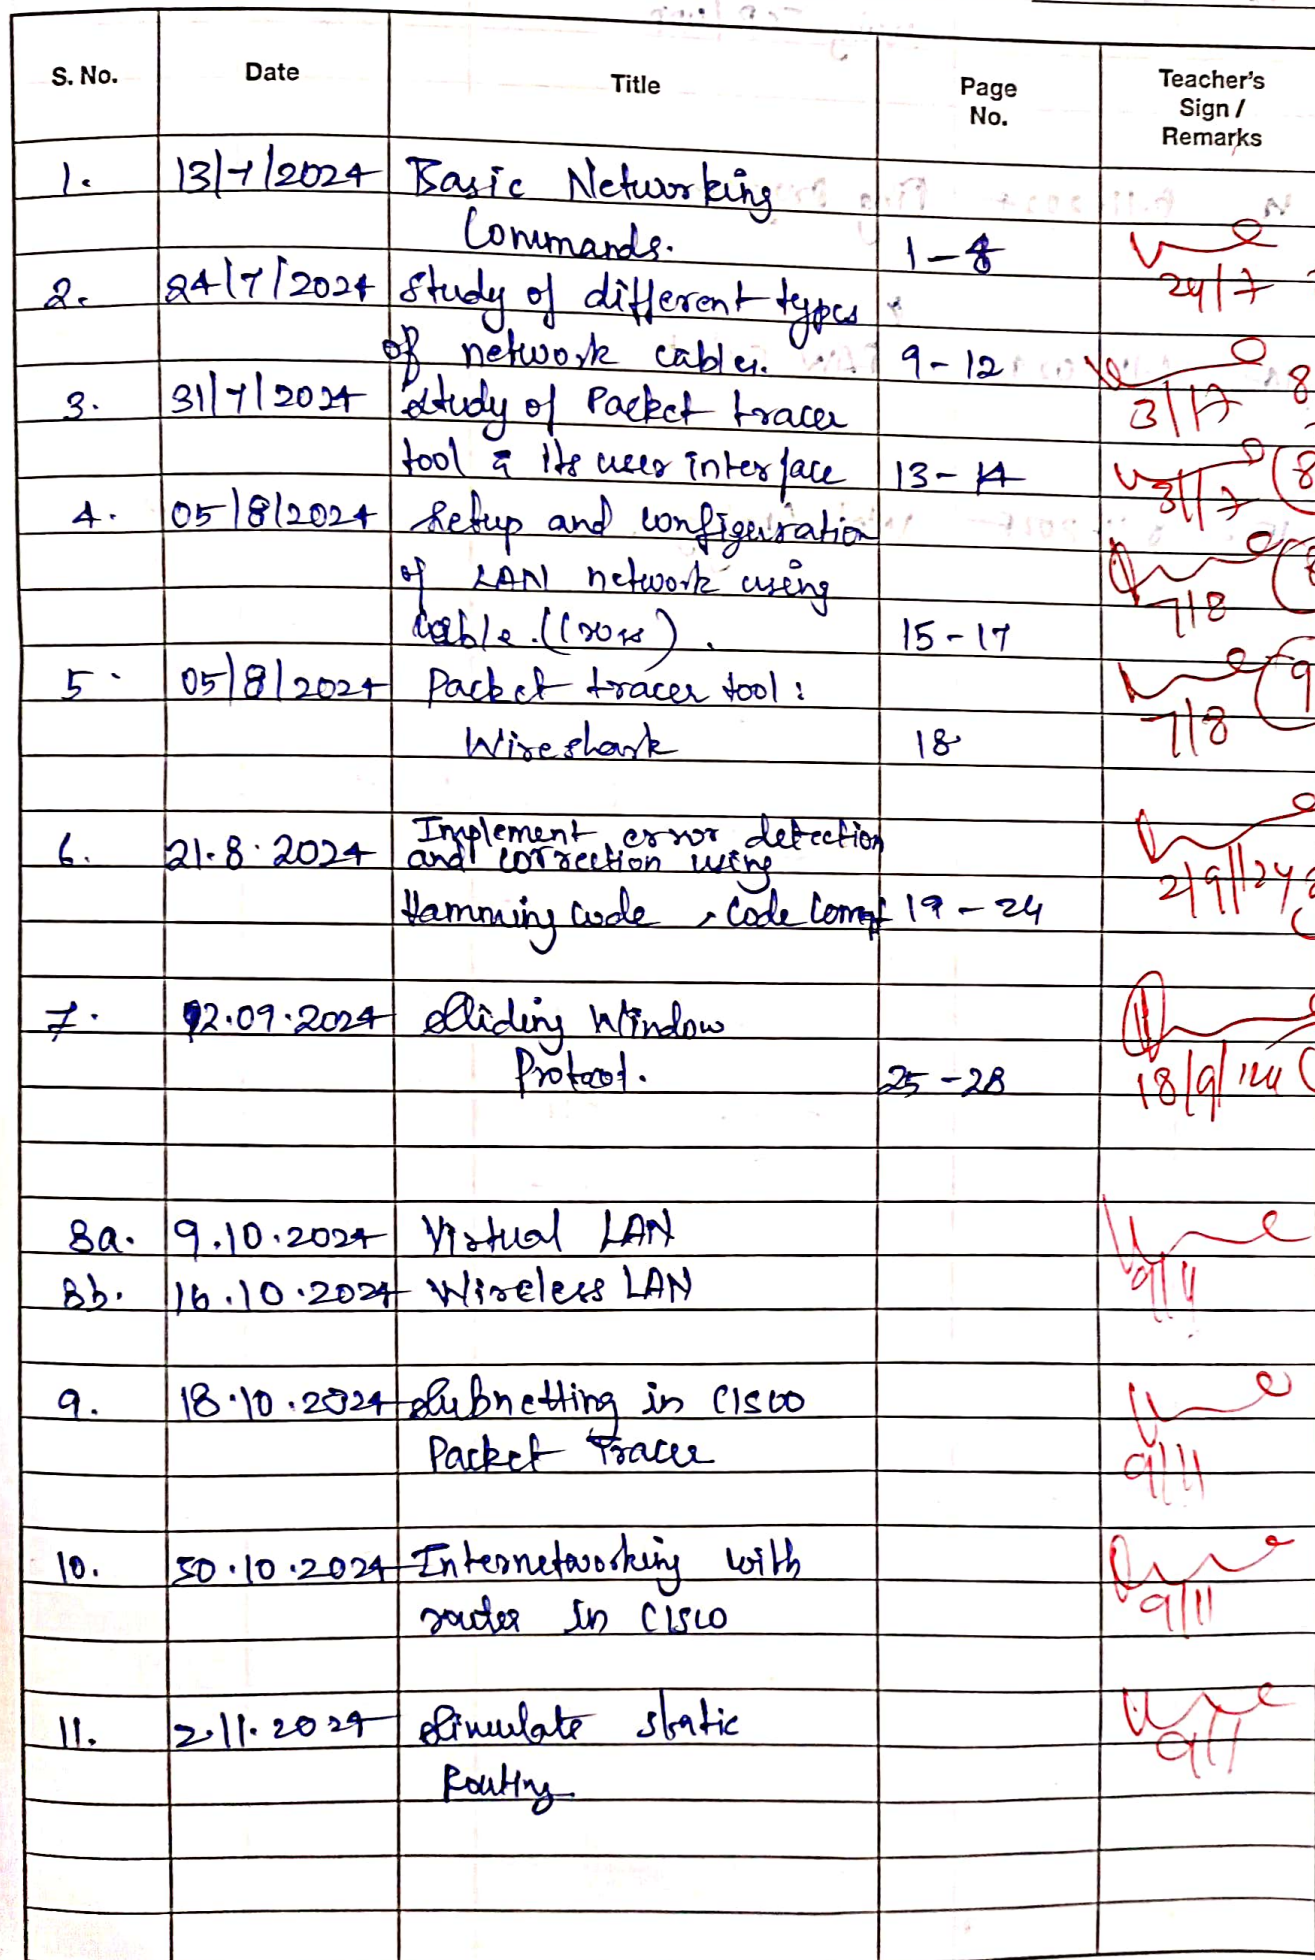 S. No. Date Title Page No. Teacher's Sign / Remarks
1. 13/7/2024 Basic Networking
Commands. 1-8
24/7
2. 24/7/2024 Study of different types
of network cables. 9-12
31/7 8
3. 31/7/2024 Study of Packet tracer
tool & its user interface 13-14
31/7 8
4. 05/8/2024 Setup and configuration
of LAN network using
7/8
cable.(Cross). 15-17
5. 05/8/2024 Packet tracer tool:
9
Wireshark 18
7/8
Implement error detection
6. 21.8.2024 and correction using
2/9/24
Hamming Code, Code Comp 19-24
7. 12.09.2024 Sliding Window
Protocol. 25-28
18/9/24
8a. 9.10.2024 Virtual LAN
8b. 16.10.2024 Wireless LAN
9/11
9. 18.10.2024 Subnetting in CISCO
Packet Tracer
9/11
10. 30.10.2024 Internetworking with
router in CISCO
9/11
11. 2.11.2024 Simulate static
9/11
Routing